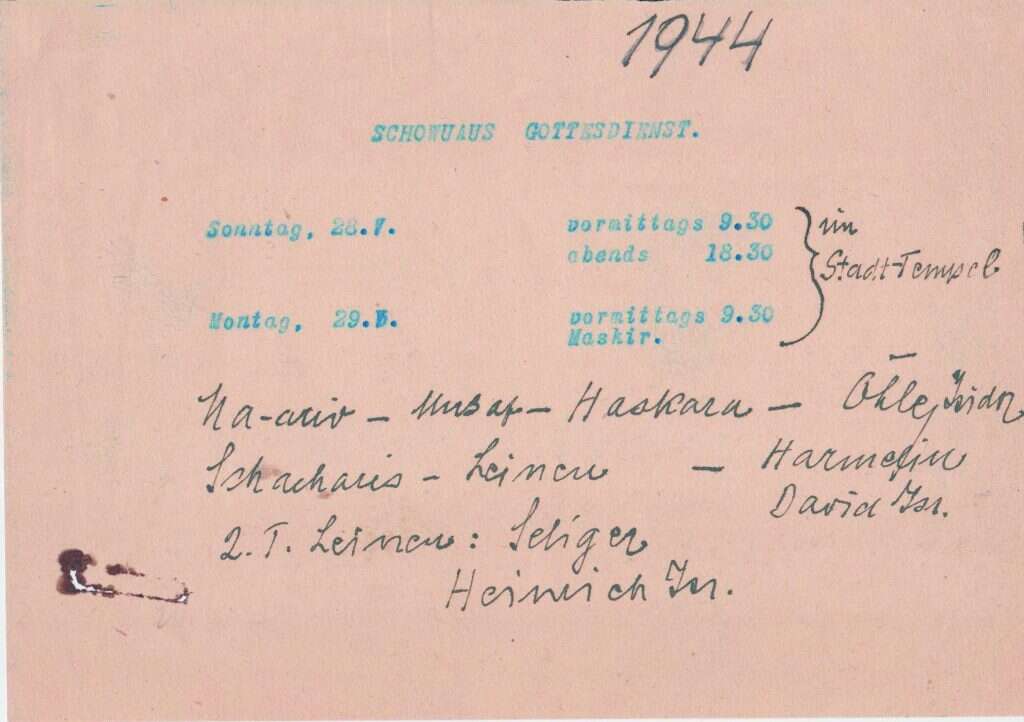 1944
SCHOWUAUS GOTTESDIENST.
Sonntag, 28.V. vormittags 9.30
abends 18.30
im
Stadt-Tempel
Montag, 29.V. vormittags 9.30
Maskir.
Ma-ariv – Musaf – Haskara – Ohle, Isidor
Schacharis – Leinen – Harmelin
David Isr.
2. T. Leinen: Seliger
Heinrich Isr.